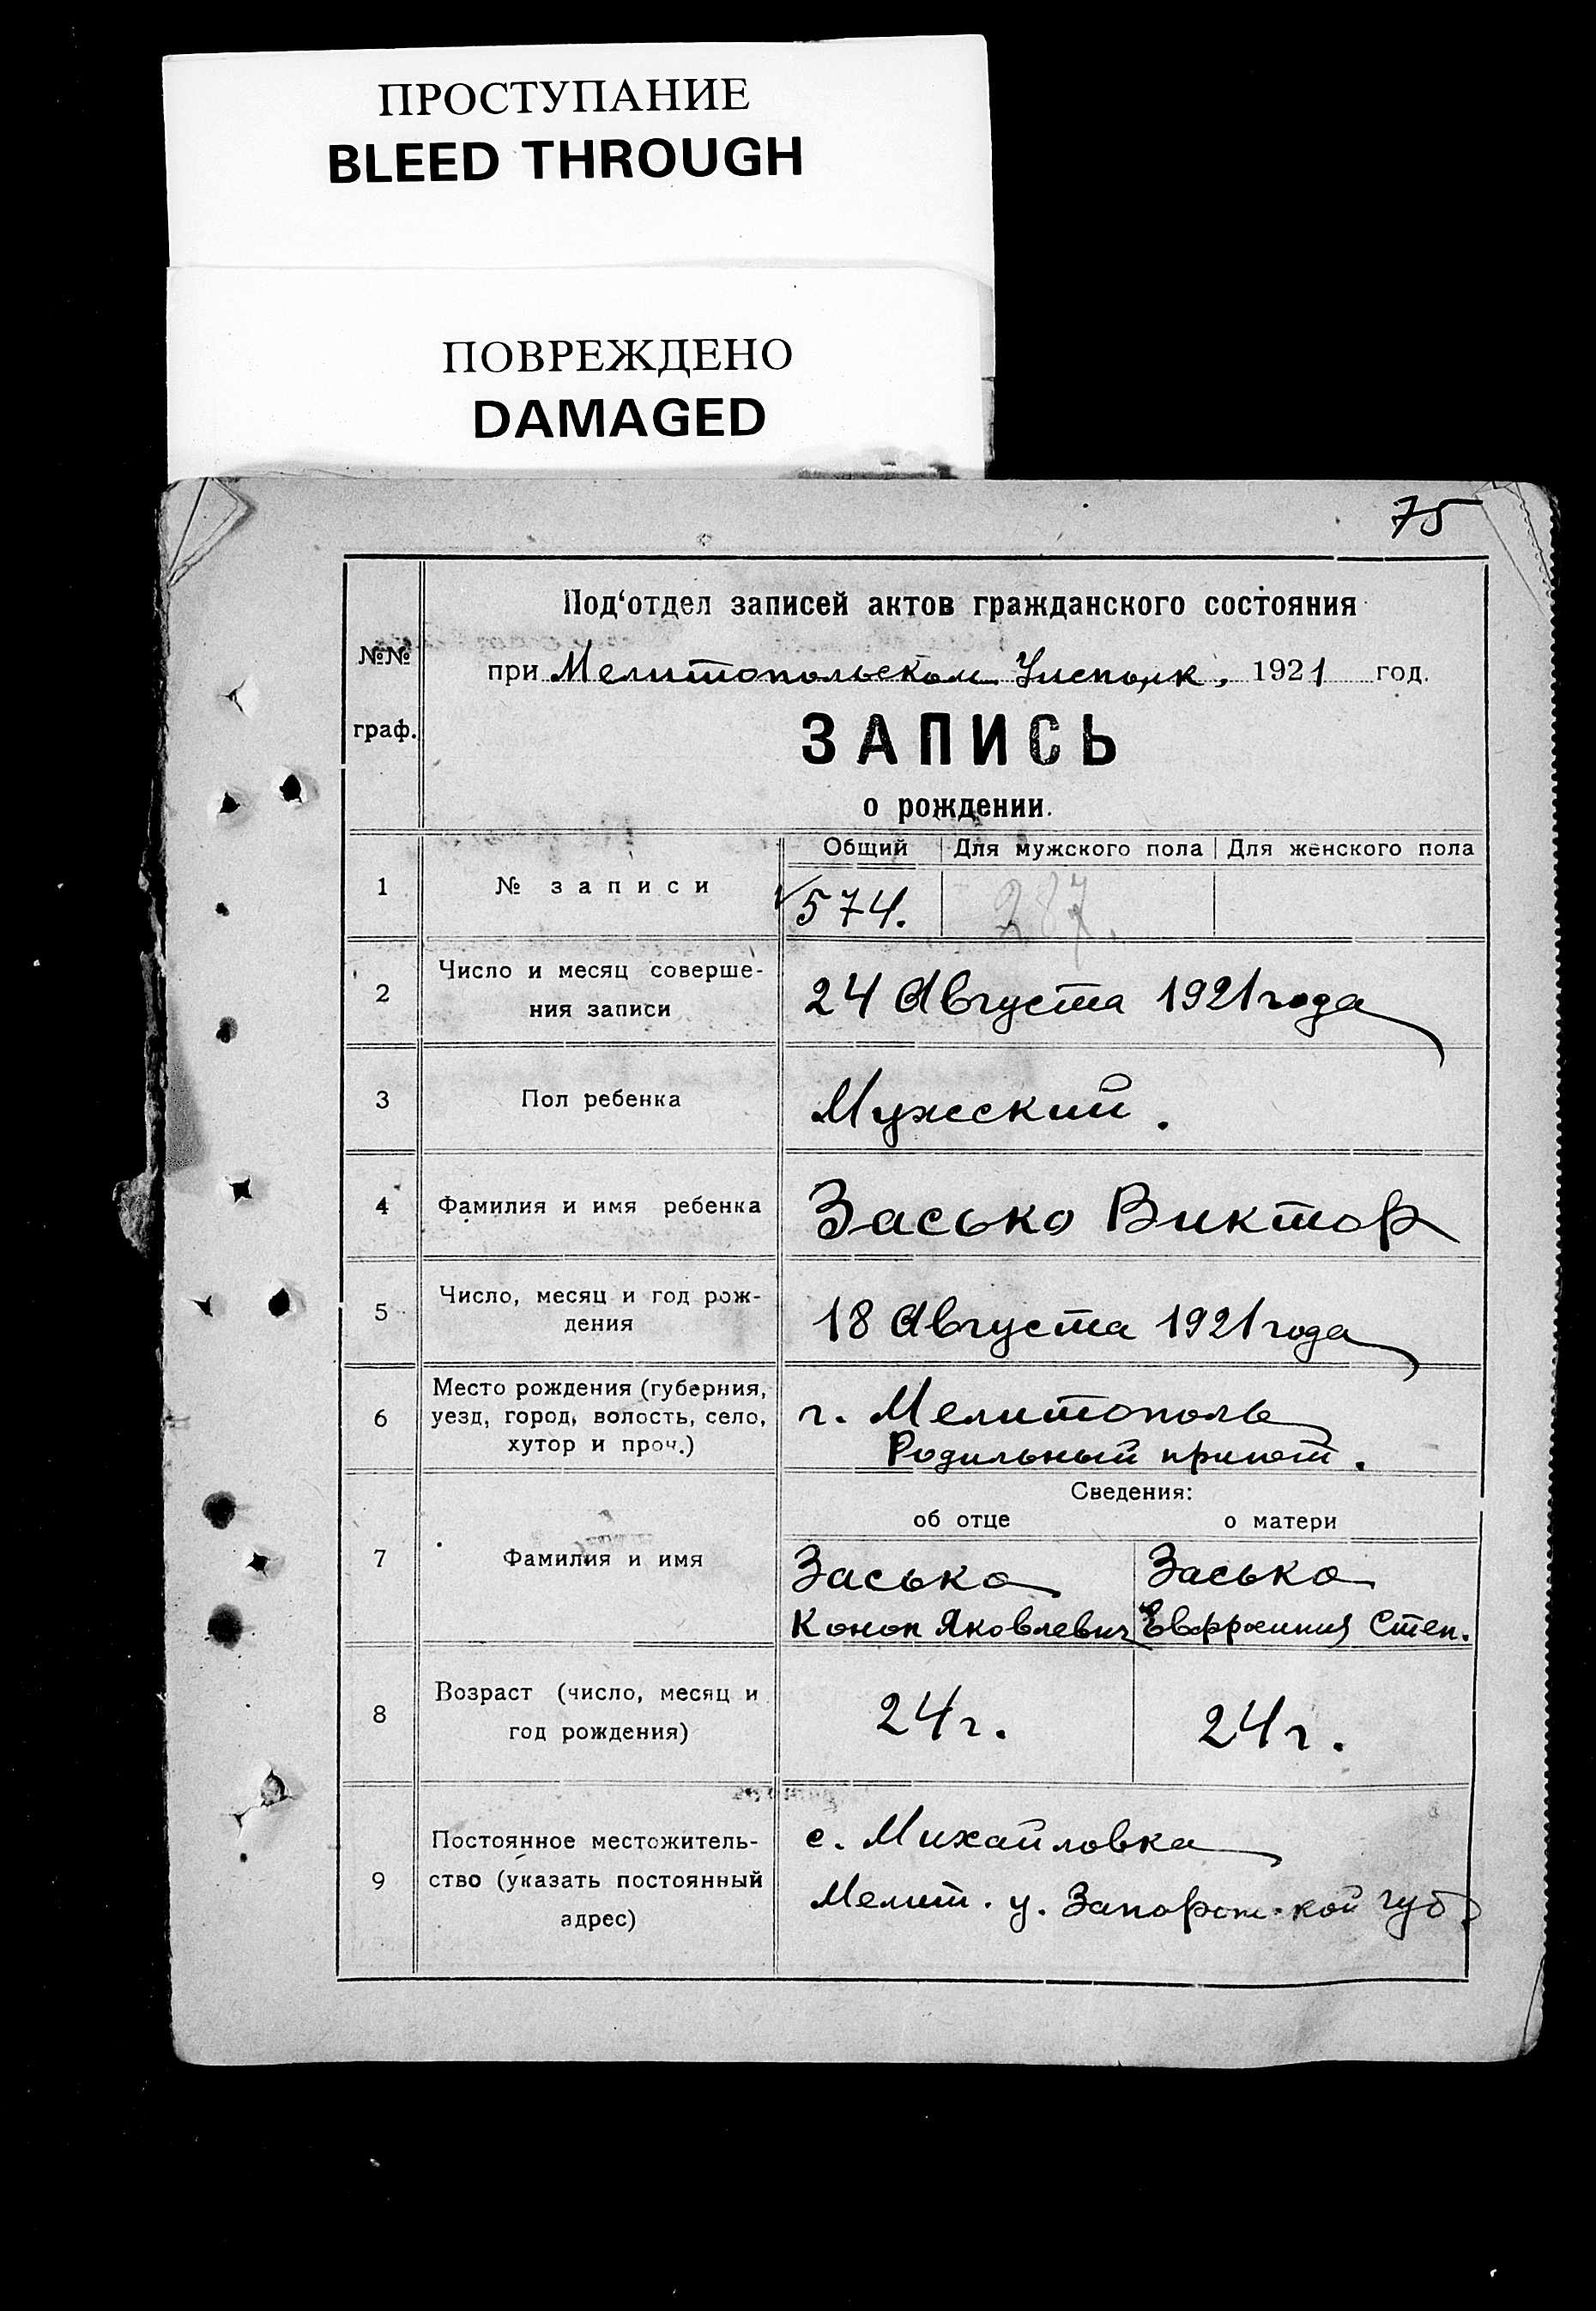 ПРОСТУПАНИЕ
BLEED THROUGH
ПОВРЕЖДЕНО
DAMAGED
75
Под‘отдел записей актов гражданского состояния
№№
граф.
при Мелитопольском Уисполк, 1921 год.
ЗАПИСЬ
о рождении.
1 № записи
Общий Для мужского пола Для женского пола
574. 287.
2 Число и месяц соверше-
ния записи
24 Августа 1921 года
3 Пол ребенка Мужеский.
4 Фамилия и имя ребенка Засько Виктор
5 Число, месяц и год рож-
дения
18 Августа 1921 года
6 Место рождения (губерния,
уезд, город, волость, село,
хутор и проч.)
г. Мелитополь
Родильный приют.
Сведения:
об отце о матери
7 Фамилия и имя
Засько Засько
Конон Яковлевич Евфросиния Степ.
8 Возраст (число, месяц и
год рождения)
24 г. 24 г.
9 Постоянное местожитель-
ство (указать постоянный
адрес)
с. Михайловка
Мелит. у. Запорож-кой губ.